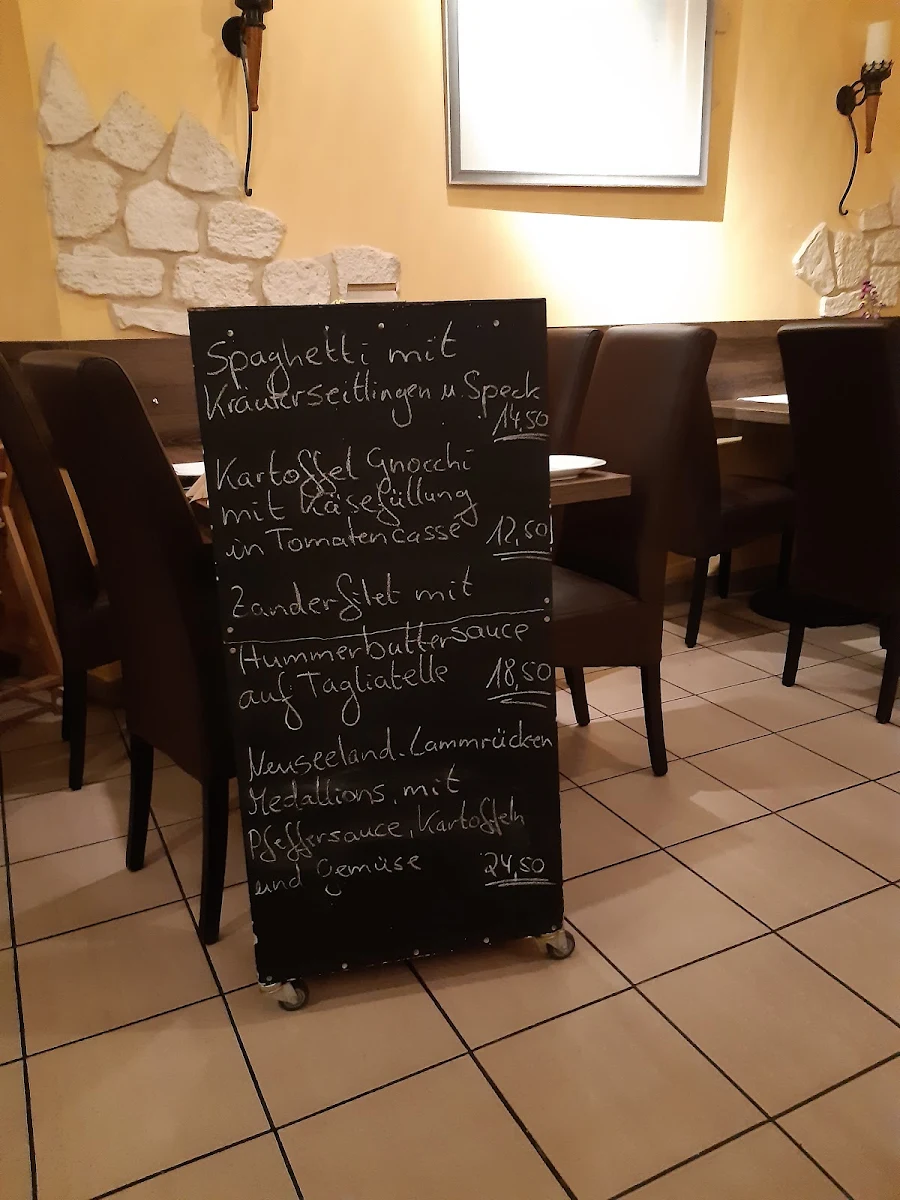 Spaghetti mit
Kräuterseitlingen u. Speck
14,50
Kartoffel Gnocchi
mit Käsefüllung
in Tomatensasse 12,50
Zanderfilet mit
Hummerbuttersauce
auf Tagliatelle 18,50
Neuseeland-Lammrücken
Medallions, mit
Pfeffersauce, Kartoffeln
und Gemüse 24,50